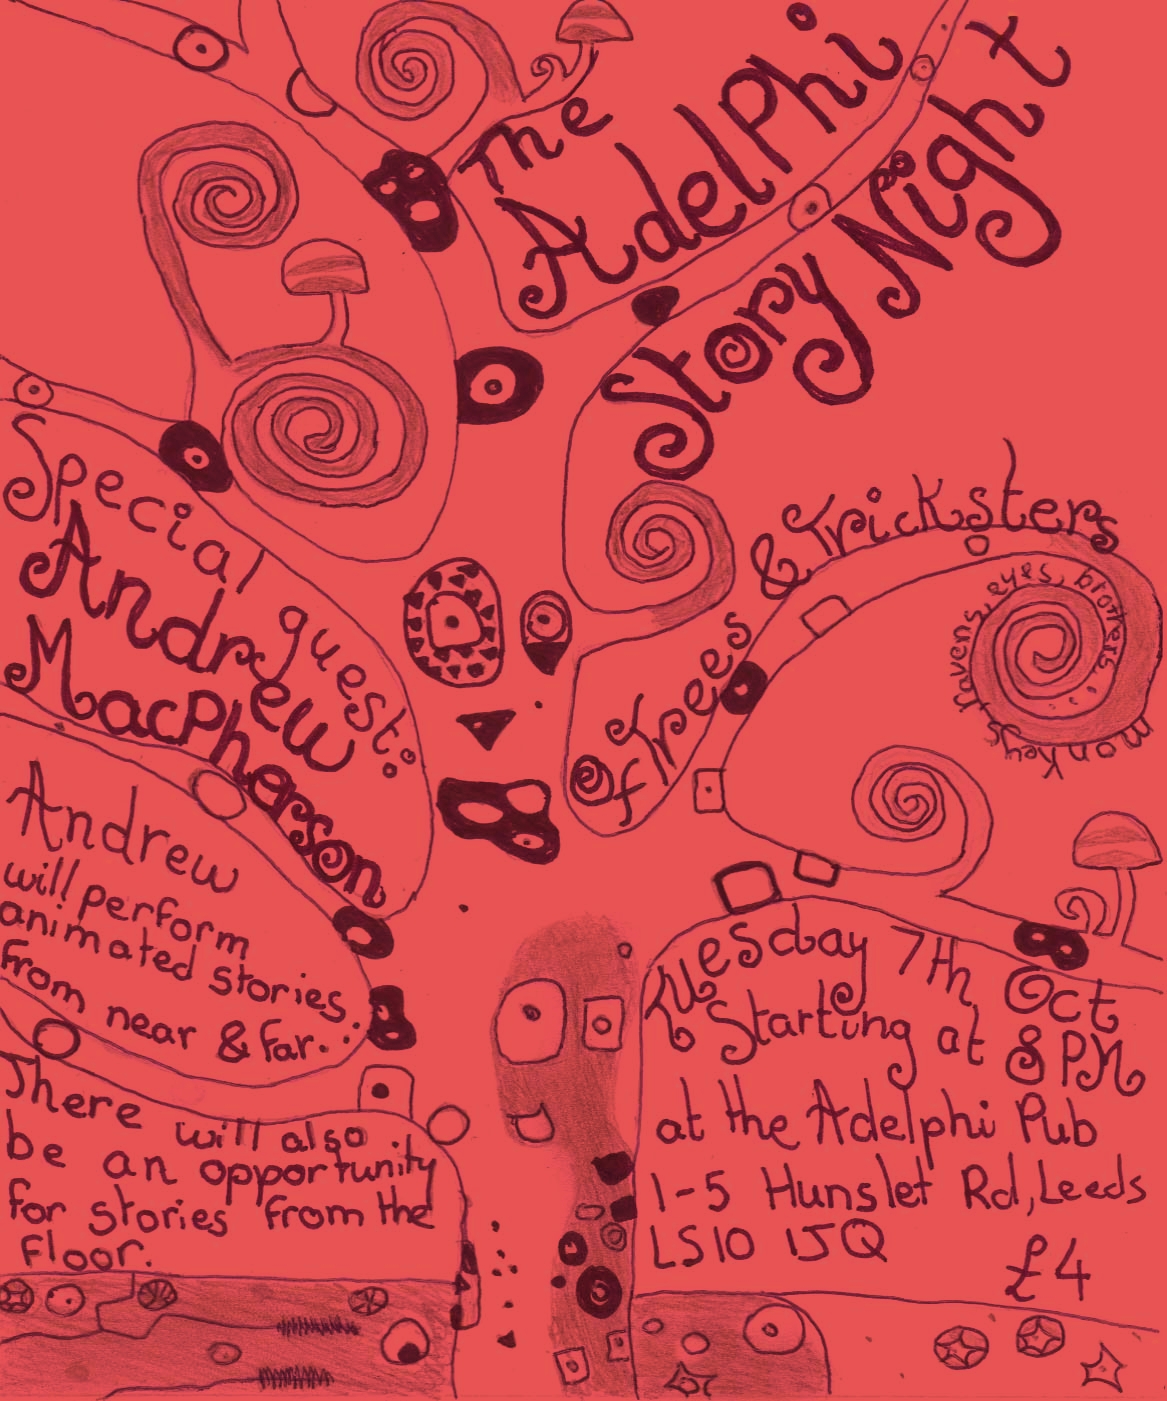 The
Adelphi
Story Night
Of Trees & Tricksters
monkeys, ravens, eyes, brothers...
Special guest:
Andrew
MacPherson
Andrew
will perform
animated stories
from near & far...
There will also
be an opportunity
for stories from the
floor.
Tuesday 7th Oct
Starting at 8PM
at the Adelphi Pub
1-5 Hunslet Rd, Leeds
LS10 1JQ
£4